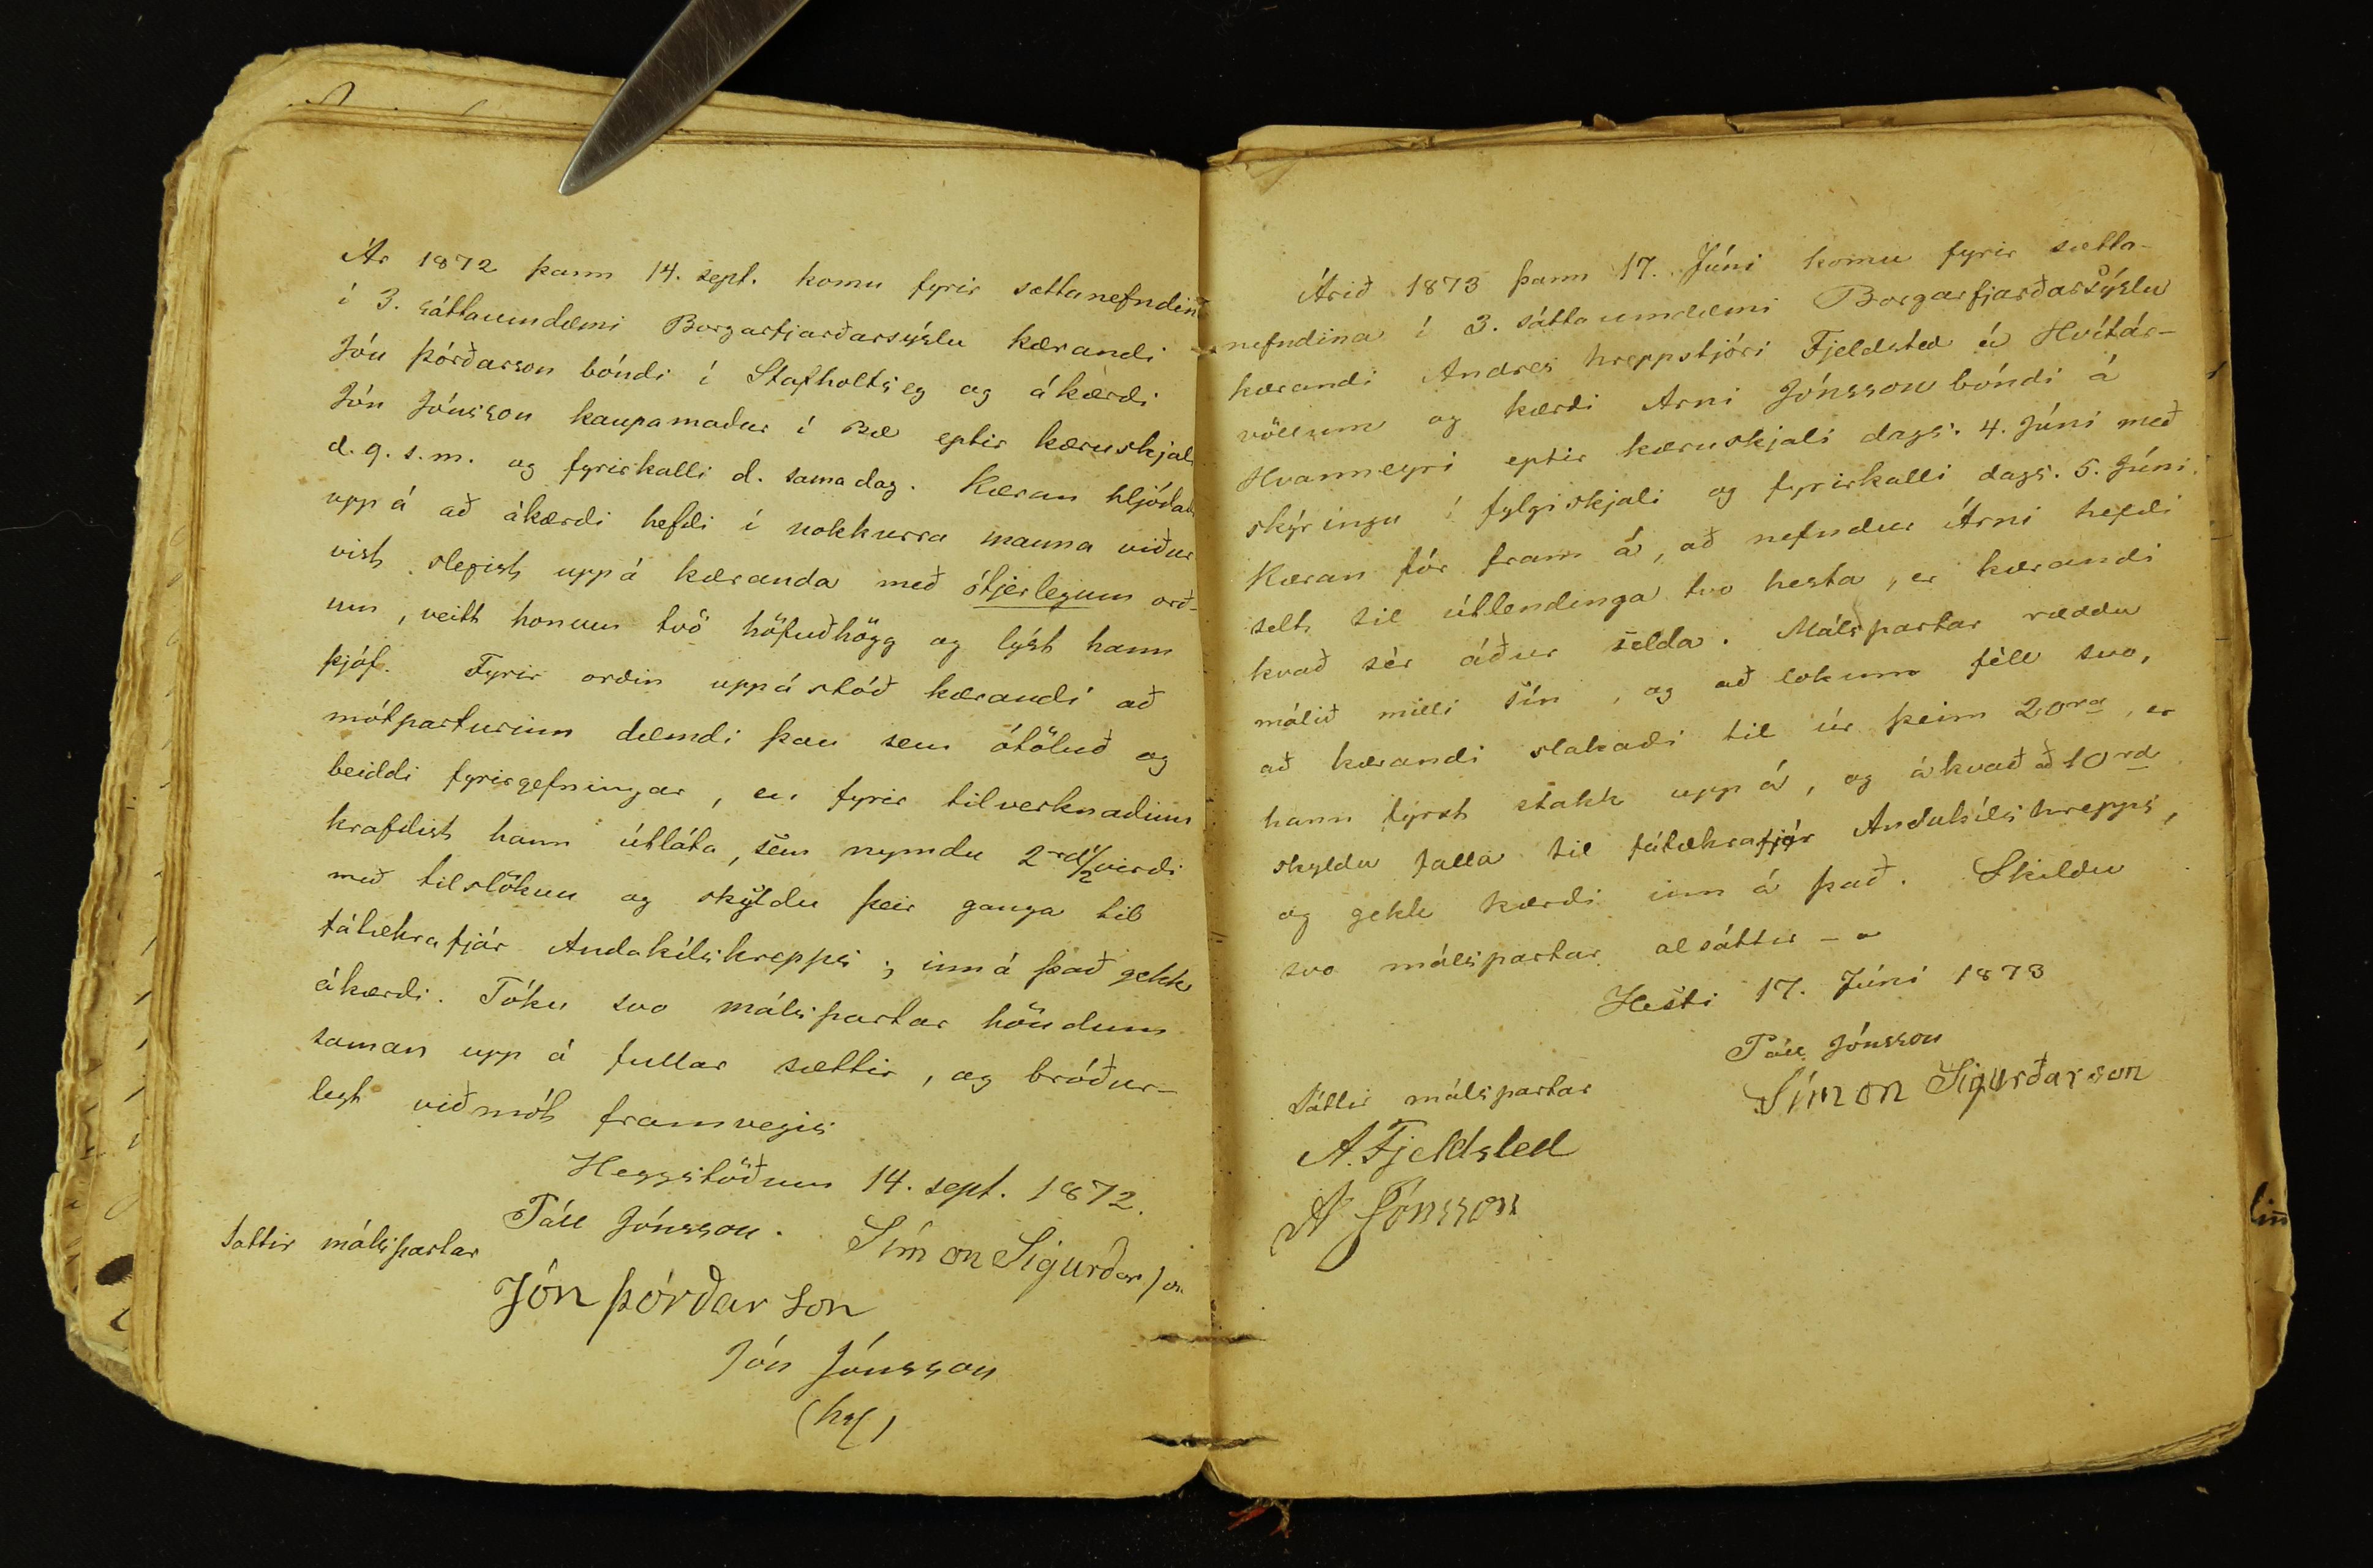 Ár 1872 þann 14. sept. komu fyrir sættanefndina
í 3. sáttaumdæmi Borgarfjarðarsýslu kærandi
Jón Þórðarson bóndi í Stafholtsey og ákærði
Jón Jónsson kaupamaður í Bæ eptir kæruskjali
d. 9. s. m. og fyrirkalli d. sama dag. Kæran hljóðaði
uppá að ákærði hefði í nokkurra manna viður
vist slegist uppá kæranda með ótjerlegum orð-
um, veitt honum tvö höfuðhögg og lýst hann
þjóf. Fyrir orðin uppástóð kærandi að
mótparturinn dæmdi þau sem ótöluð og
beiddi fyrirgefningar, en fyrir tilverknaðinn
krafðist hann útláta, sem nymdu 2rd 1/2 virði
með tilslökun og skyldu þeir ganga til
fátækrafjár Andakílshrepps; inná það gekk
ákærði. Tóku svo málspartar höndum
saman upp á fullar sættir, og bróður-
legt viðmót framvegis
Heggstöðum 14. sept. 1872.
Páll Jónsson. Símon Sigurðarson
Sáttir málspartar
Jón Þórðarson
Jón Jónsson
Árið 1873 þann 17. Júni komu fyrir sætta-
nefndina í 3. sáttaumdæmi Borgarfjarðarsýslu
kærandi Andres hreppstjóri Fjeldsted á Hvítár-
völlum og kærði Arni Jónsson bóndi á
Hvanneyri eptir kæruskjali dags. 4. Júni með
skýringu í fylgiskjali og fyrirkalli dags. 5. Júni.
Kæran fór fram á, að nefndur Árni hefði
selt til útlendinga tvo hesta, er kærandi
kvað sér áður selda. Málspartar ræddu
málið milli sín, og að lokum féll svo,
að kærandi slakaði til úr þeim 20rd, er
hann fýrst stakk uppá, og ákvað að 10rd
skyldu falla til fátækrafjár Andakílshrepps,
og gekk kærði inn á það. Skildu
svo málspartar alsáttir -
Hesti 17. Júní 1873
Páll Jónsson
Símon Sigurðarson
Sáttir málspartar
A. Fjeldsted
A Jónsson